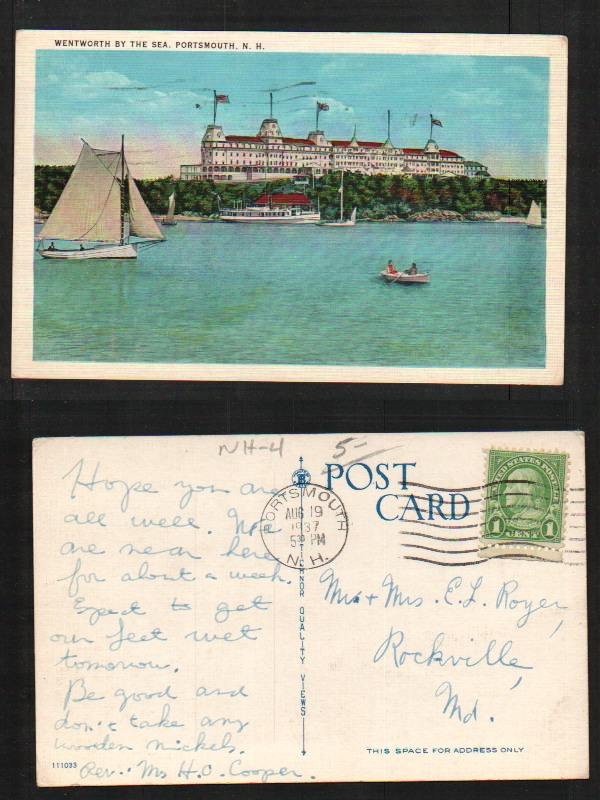 WENTWORTH BY THE SEA, PORTSMOUTH, N. H.
NH-4 5-
POST
CARD
PORTSMOUTH
AUG 19
1937
5 30 PM
N. H.
UNITED STATES POSTAGE
1 CENT 1
TICHNOR QUALITY VIEWS
Hope you are
all well. We
are near here
for about a week.
Expect to get
our feet wet
tomorrow.
Be good and
don't take any
wooden nickels.
Rev. + Mrs H. O. Cooper.
Mr + Mrs. E. L. Royer,
Rockville,
Md.
THIS SPACE FOR ADDRESS ONLY
111033